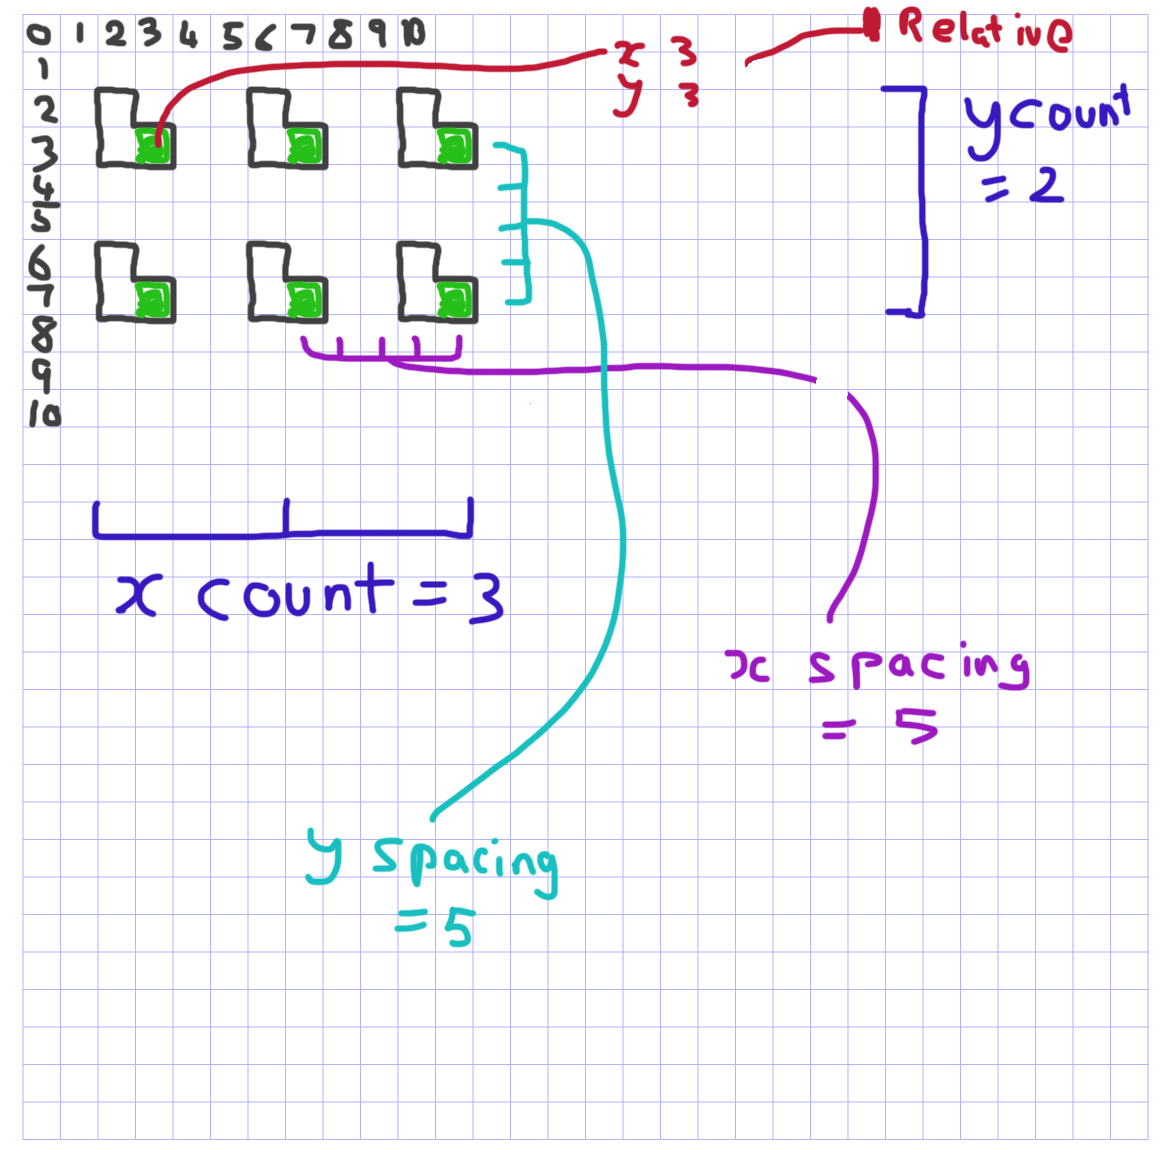 0 1 2 3 4 5 6 7 8 9 10
1
2
3
4
5
6
7
8
9
10
x 3
y 3
Relative
y count
= 2
x count = 3
x spacing
= 5
y spacing
= 5